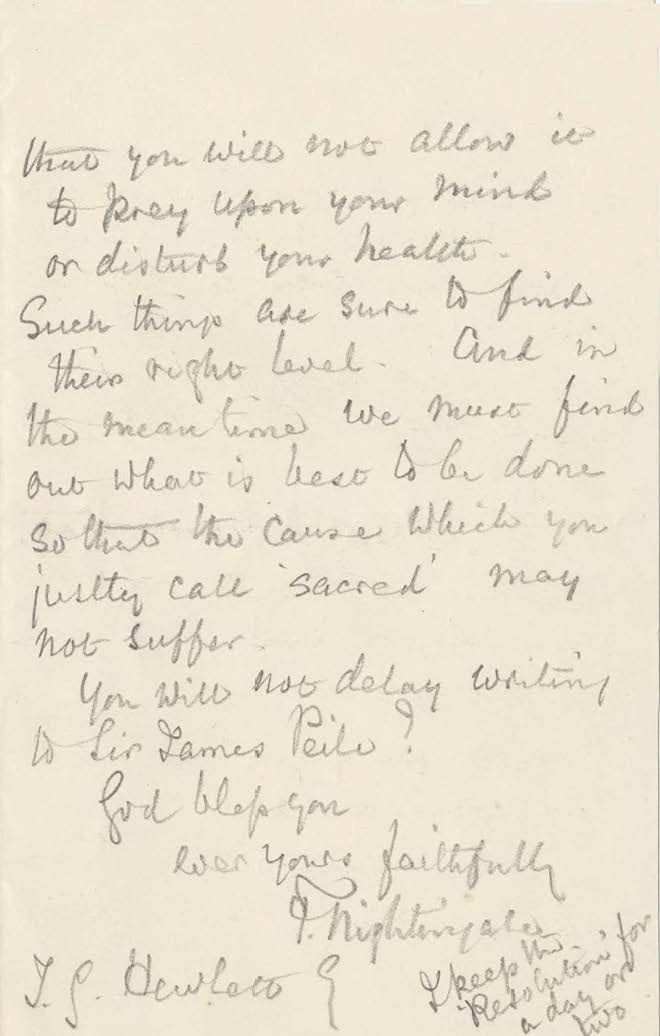 that you will not allow it
to prey upon your mind
or disturb your health.
Such things are sure to find
their right level. And in
the mean time we must find
out what is best to be done
so that the Cause which you
justly call 'sacred' may
not suffer.
You will not delay writing
to Sir James Peile?
God bless you
ever yours faithfully
F. Nightingale
T. G. Hewlett
I keep the
'Resolution' for
a day or
two